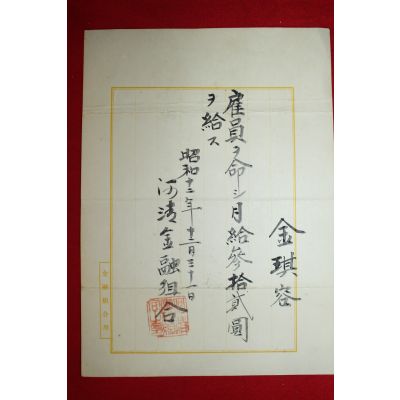 金琪容
雇員ヲ命シ月給參拾貳圓
ヲ給ス
昭和十二年十二月三十一日
河淸金融組合
金融組合用